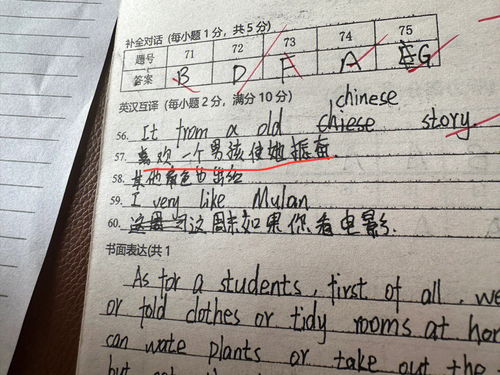 补全对话 (每小题1分，共5分)
题号 71 72 73 74 75
答案 B D F A G
英汉互译 (每小题2分，满分10分)
chinese
56. It from a old chiese story
57. 喜欢一个男孩使她振奋.
58. 其他角色也出
59. I very like Mulan
60. 这周末如果你看电影.
书面表达(共1
As for a students, first of all, we
or fold clothes or tidy rooms at hom
can wate plants or take out the
but not